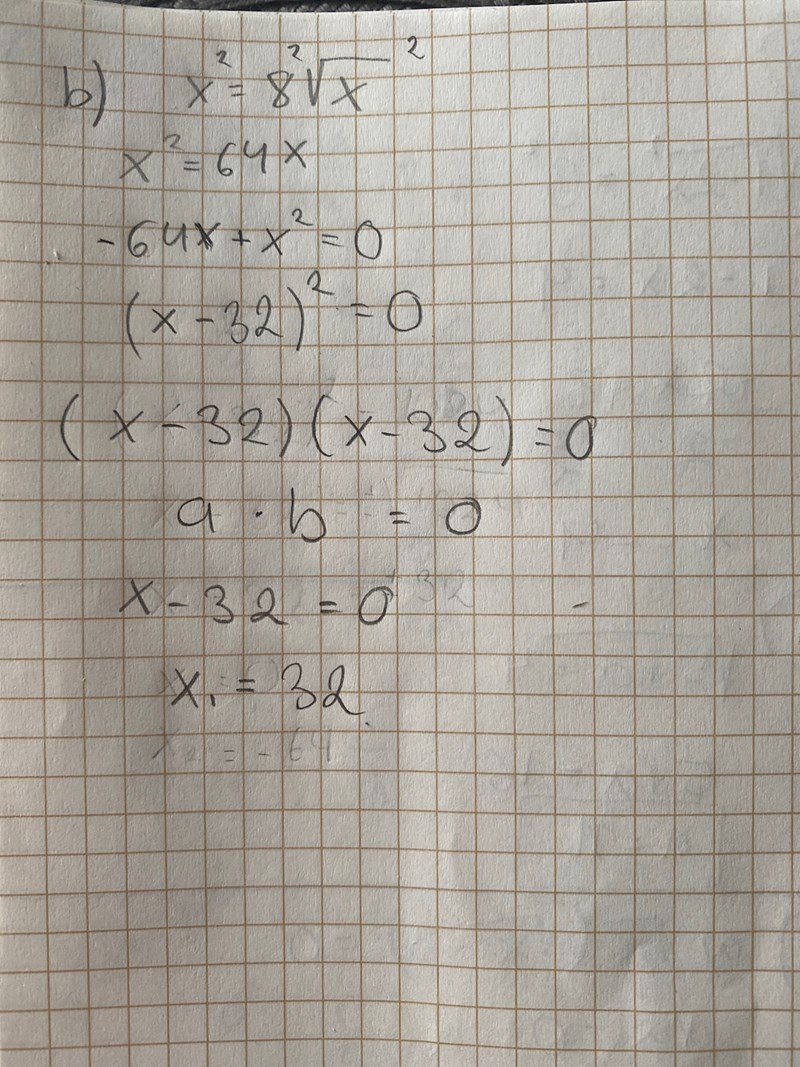 b) x² = 8²√x²
x² = 64x
-64x + x² = 0
(x - 32)² = 0
(x - 32)(x - 32) = 0
a · b = 0
x - 32 = 0
x₁ = 32
x₂ = -64